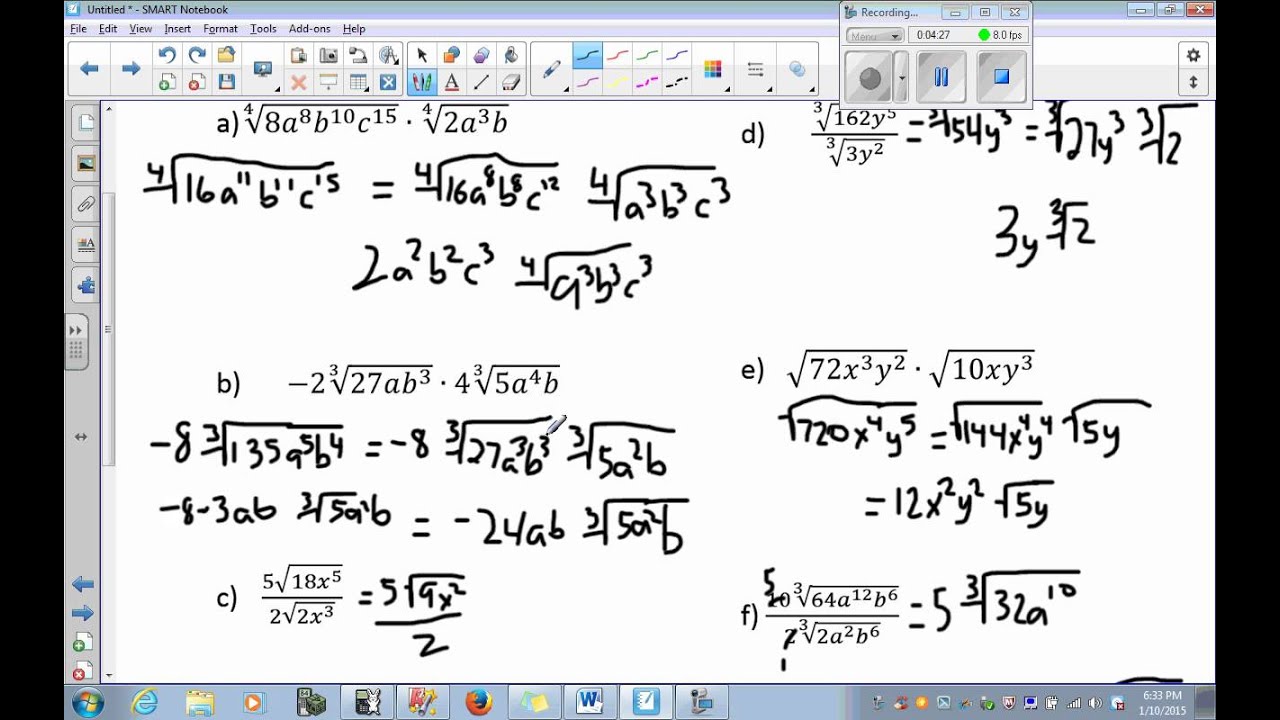 Untitled * - SMART Notebook
File Edit View Insert Format Tools Add-ons Help
Recording...
Menu 0:04:27 8.0 fps
a) ∜(8a⁸b¹⁰c¹⁵) · ∜(2a³b)
∜(16a¹¹b¹¹c¹⁵) = ∜(16a⁸b⁸c¹²) ∜(a³b³c³)
2a²b²c³ ∜(a³b³c³)
b) −2∛(27ab³) · 4∛(5a⁴b)
-8 ∛(135a⁵b⁴) = -8 ∛(27a³b³) ∛(5a²b)
-8·3ab ∛(5a²b) = -24ab ∛(5a²b)
c) 5√(18x⁵) / 2√(2x³) = 5√(9x²) / 2
d) ∛(162y⁵) / ∛(3y²) = ∛(54y³) = ∛(27y³) ∛2
3y ∛2
e) √(72x³y²) · √(10xy³)
√(720x⁴y⁵) = √(144x⁴y⁴) √(5y)
= 12x²y² √(5y)
5
f) 10∛(64a¹²b⁶) / 2∛(2a²b⁶) = 5 ∛(32a¹⁰)
1
6:33 PM
1/10/2015